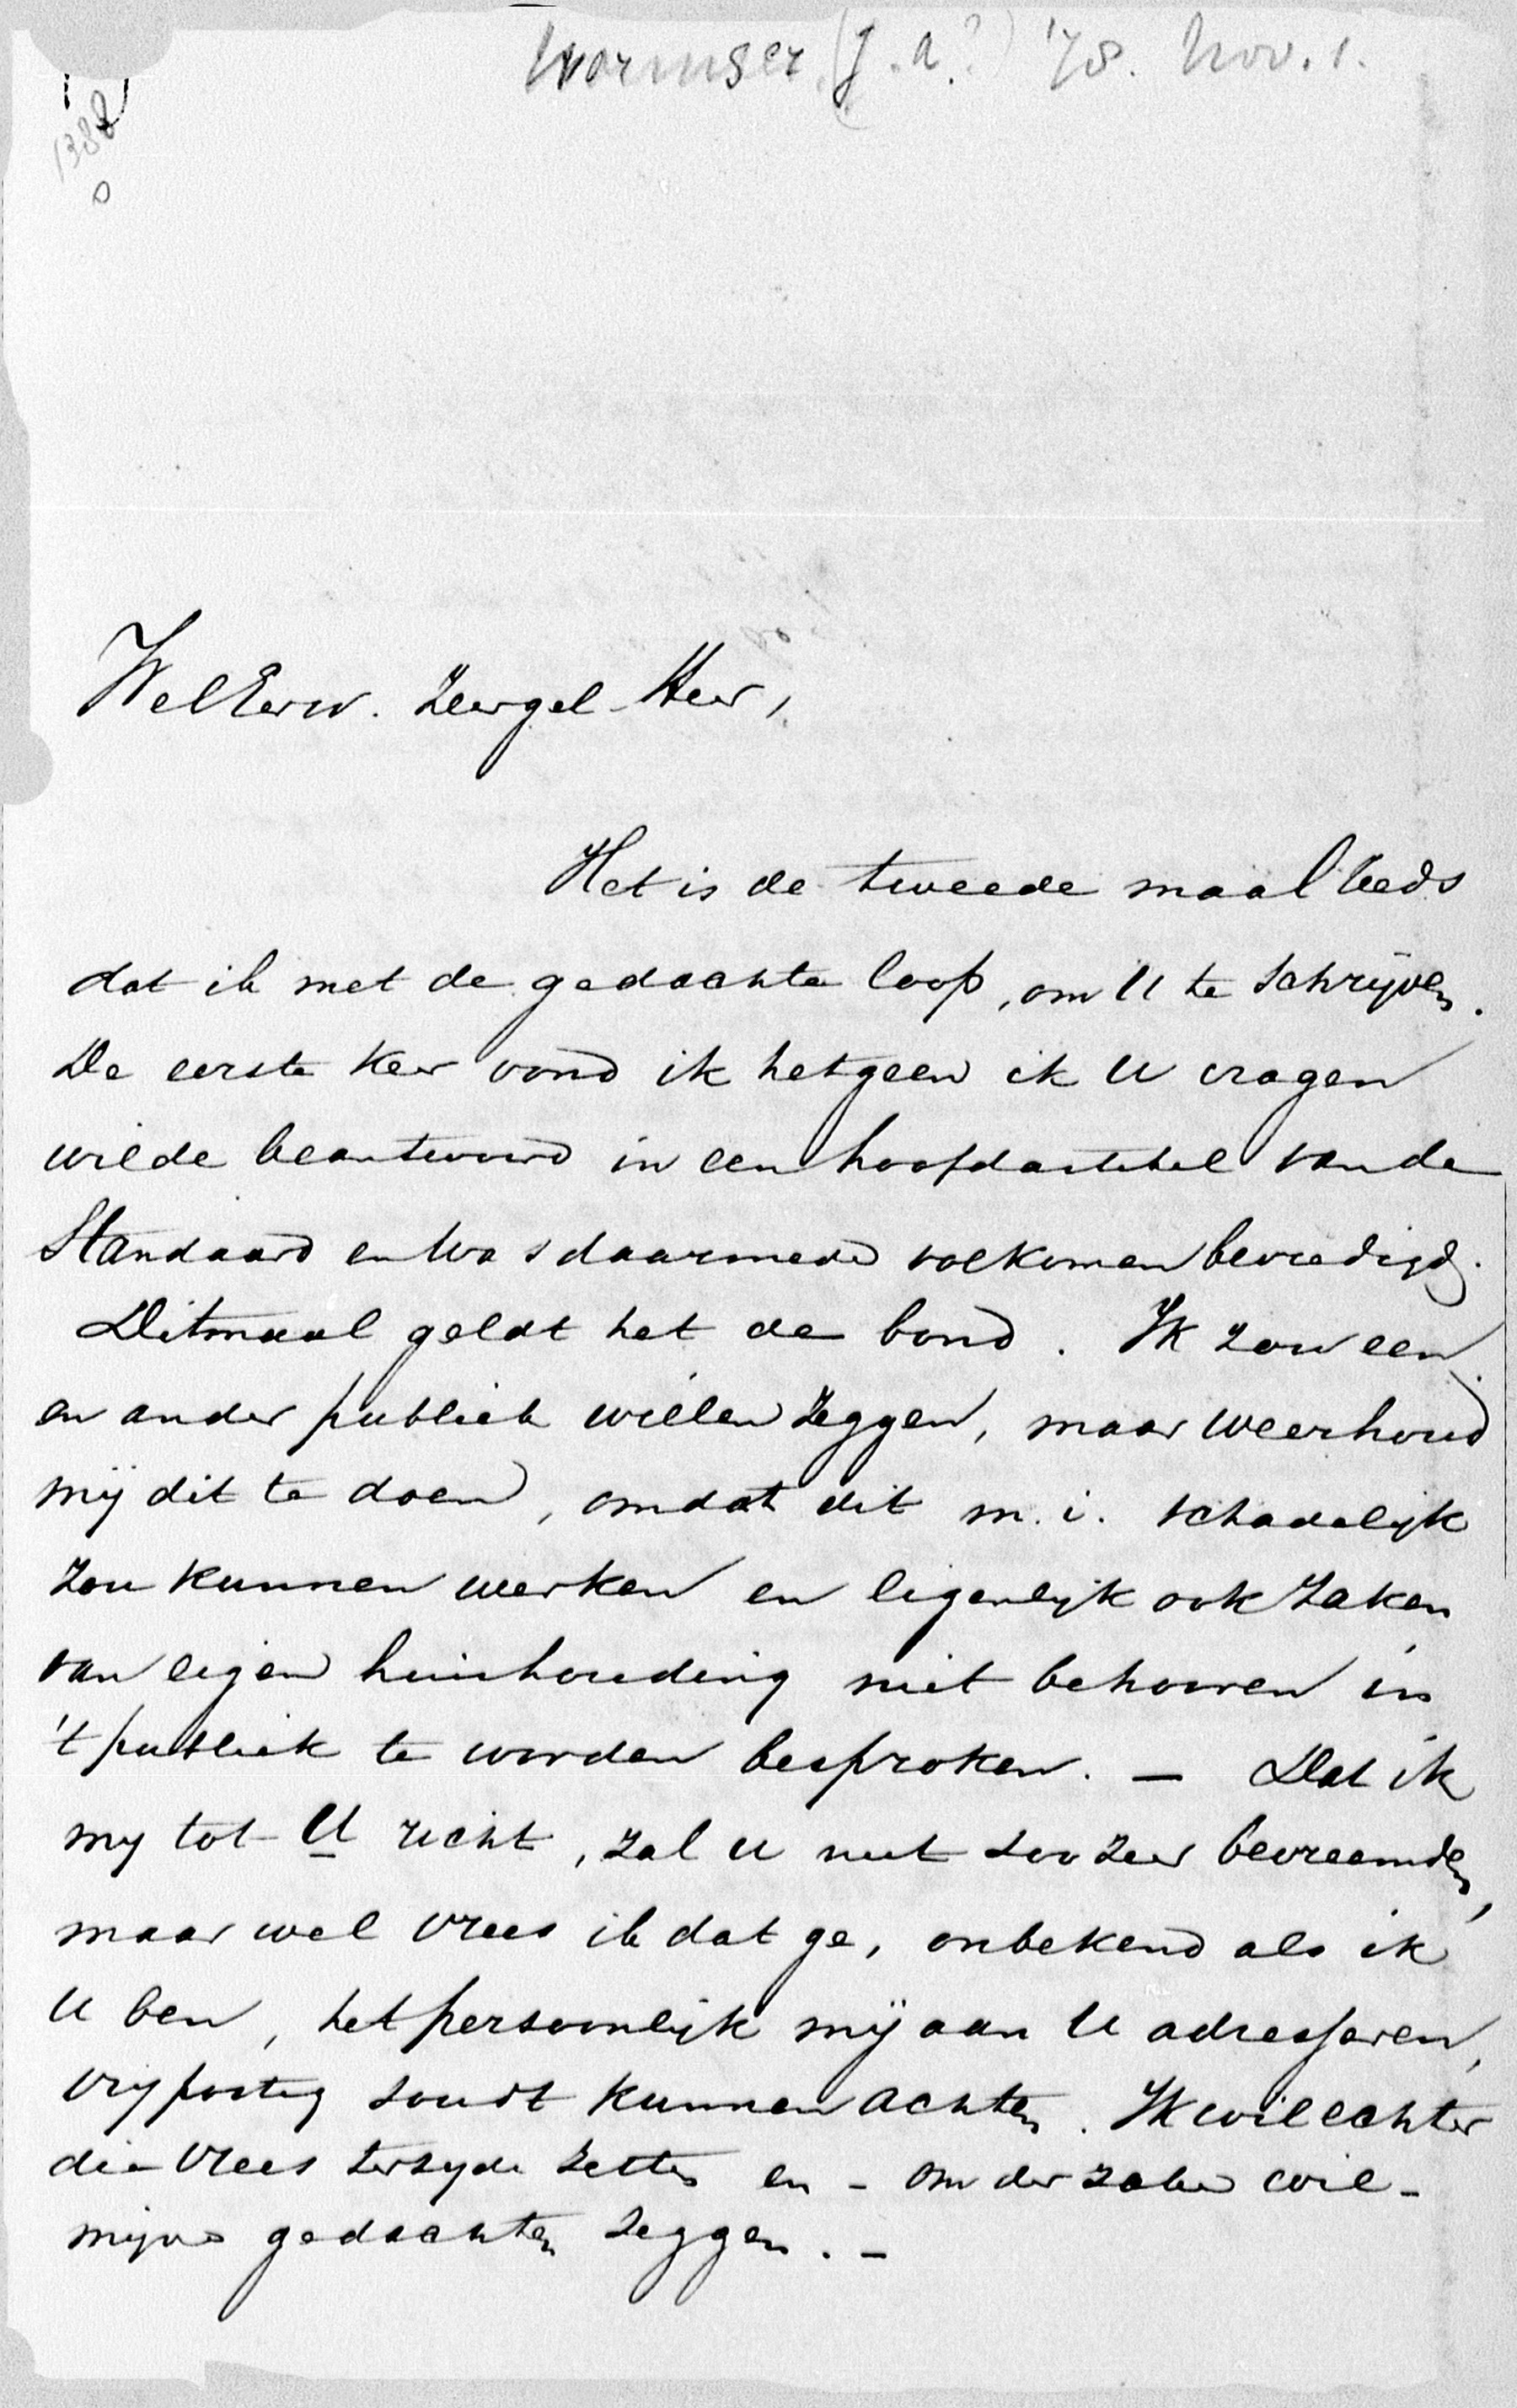 Wormser (J. A.?) '78. Nov. 1.
1388
WelEerw. Zeergel. Heer,
Het is de tweede maal reeds
dat ik met de gedachte loop, om U te schrijven.
De eerste keer vond ik hetgeen ik U vragen
wilde beantwoord in een hoofdartikel van de
Standaard en was daarmede volkomen bevredigd.
Ditmaal geldt het de bond. Ik zou een
en ander publiek willen zeggen, maar weerhoud
mij dit te doen, omdat dit m.i. schadelijk
zou kunnen werken en eigenlijk ook zaken
van eigen huishouding niet behooren in
't publiek te worden besproken. — Dat ik
my tot U richt, zal U niet zoo zeer bevreemden,
maar wel vrees ik dat ge, onbekend als ik
U ben, het persoonlijk mij aan U adresseren,
vrijpostig zoudt kunnen achten. Ik wil echter
die vrees terzyde zetten en - om der zake wil -
mijne gedachten zeggen. -